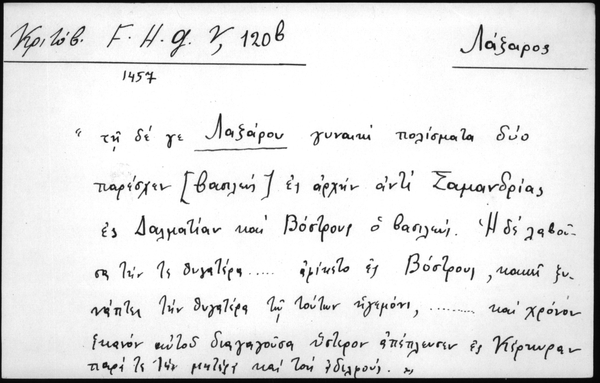 Κριτόβ. F. H. g. V, 120β
Λάζαρος
1457
"τῇ δέ γε Λαζάρου γυναικὶ πολίσματα δύο
παρέσχεν [βασιλεὺς] ἐς ἀρχὴν ἀντὶ Σαμανδρίας
ἐς Δαλματίαν καὶ Βόστρους ὁ βασιλεύς. Ἡ δὲ λαβοῦ-
σα τήν τε θυγατέρα ..... ἀφίκετο ἐς Βόστρους, κακεῖ ξυ-
νάπτει τὴν θυγατέρα τῷ τούτων ἡγεμόνι, ......... καὶ χρόνον
ἱκανὸν αὐτοῦ διαγαγοῦσα ὕστερον ἀπέπλευσεν ἐς Κέρκυραν
παρά τε τὴν μητέρα καὶ τοὺς ἀδελφούς."